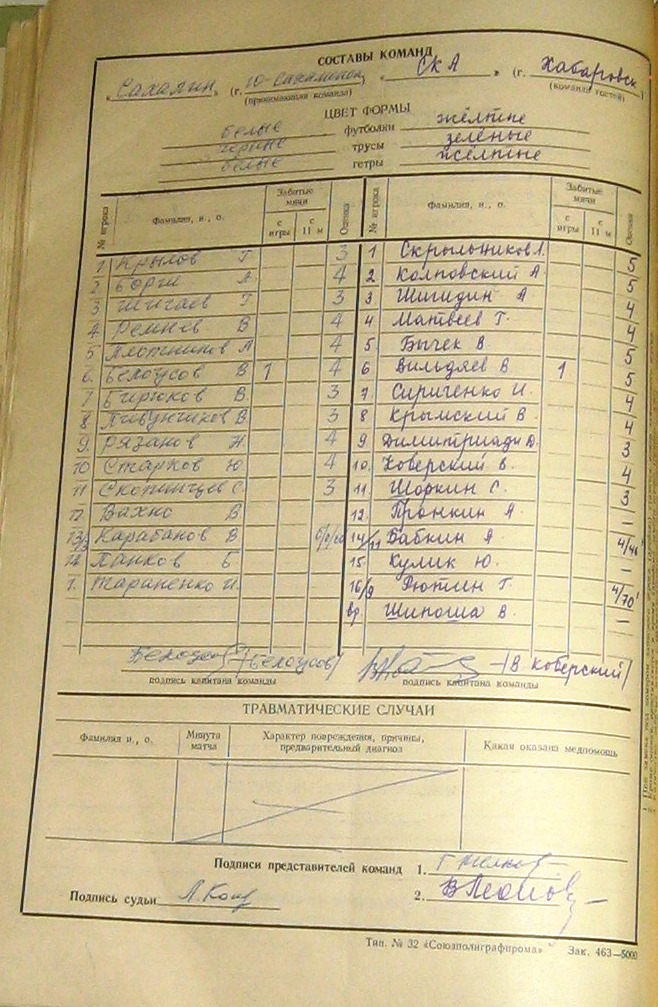 СОСТАВЫ КОМАНД
«Сахалин» (г. Ю-Сахалинск) «СКА» (г. Хабаровск)
(принимающая команда) (команда гостей)
ЦВЕТ ФОРМЫ
белые футболки жёлтые
черные трусы зелёные
белые гетры жёлтые
№ игрока Фамилия, и., о. Забитые мячи с игры с 11 м Оценка № игрока Фамилия, и., о. Забитые мячи с игры с 11 м Оценка
1 Крылов Г. 3 1 Скрыльников Л. 5
2 Борги А. 4 2 Колповский А. 5
3 Шигаев Г 3 3 Шигидин А 4
4 Ремнев В 4 4 Матвеев Г. 4
5 Плотников А 4 5 Бычек В. 5
6. Белоусов В 1 4 6 Вильдяев В 1 5
7 Бирюков В. 3 7. Сириченко И. 4
8 Пивунчиков В. 3 8 Крымский В. 4
9. Рязанов Н. 4 9 Димитриади Д. 3
10 Старков Ю. 4 10. Коберский В. 4
11 Скопинцев С. 3 11. Шоркин С. 3
12 Вахно В 12. Пронкин А. —
13 Карабанов В 14/11 Бабкин А 4/46'
14. Панков Б 15. Кулик Ю. —
7. Тараненко И. 16/9 Рютин Г. 4/70'
вр. Шипоша В. —
(Белоусов) (В Коберский)
подпись капитана команды подпись капитана команды
ТРАВМАТИЧЕСКИЕ СЛУЧАИ
Фамилия и., о. Минута матча Характер повреждения, причины, предварительный диагноз Какая оказана медпомощь
Подписи представителей команд 1.
Подпись судьи 2.
Тип. № 32 «Союзполиграфпрома» Зак. 463—5000